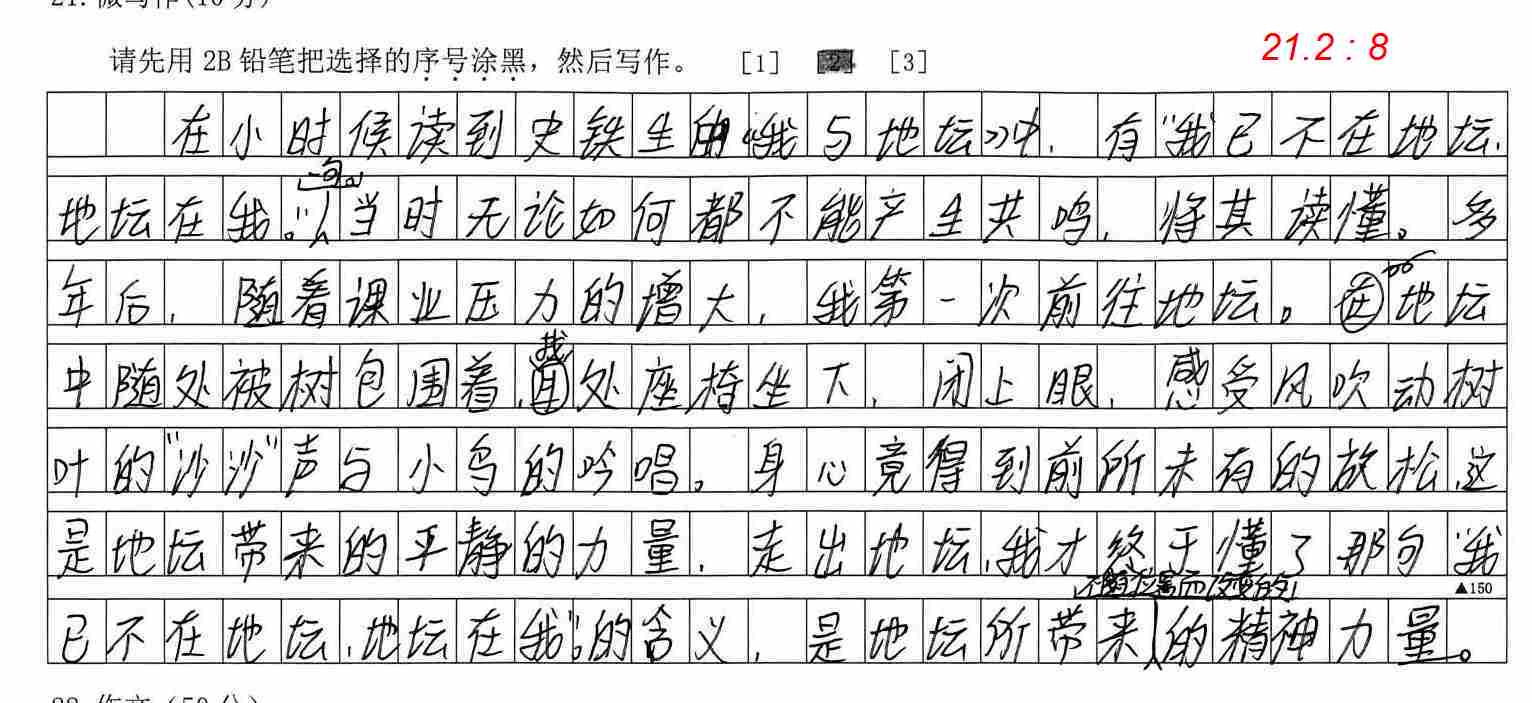 请先用 2B 铅笔把选择的序号涂黑，然后写作。 [1] [2] [3]
21.2：8
在小时候读到史铁生的《我与地坛》中，有“我已不在地坛，
一句。
地坛在我。”当时无论如何都不能产生共鸣，将其读懂。多
年后，随着课业压力的增大，我第一次前往地坛。在地坛
找
中随处被树包围着，处座椅坐下，闭上眼，感受风吹动树
叶的“沙沙”声与小鸟的吟唱。身心竟得到前所未有的放松，这
是地坛带来的平静的力量，走出地坛，我才终于懂了那句“我
▲150
已不在地坛，地坛在我”。的含义，是地坛所带来的精神力量。